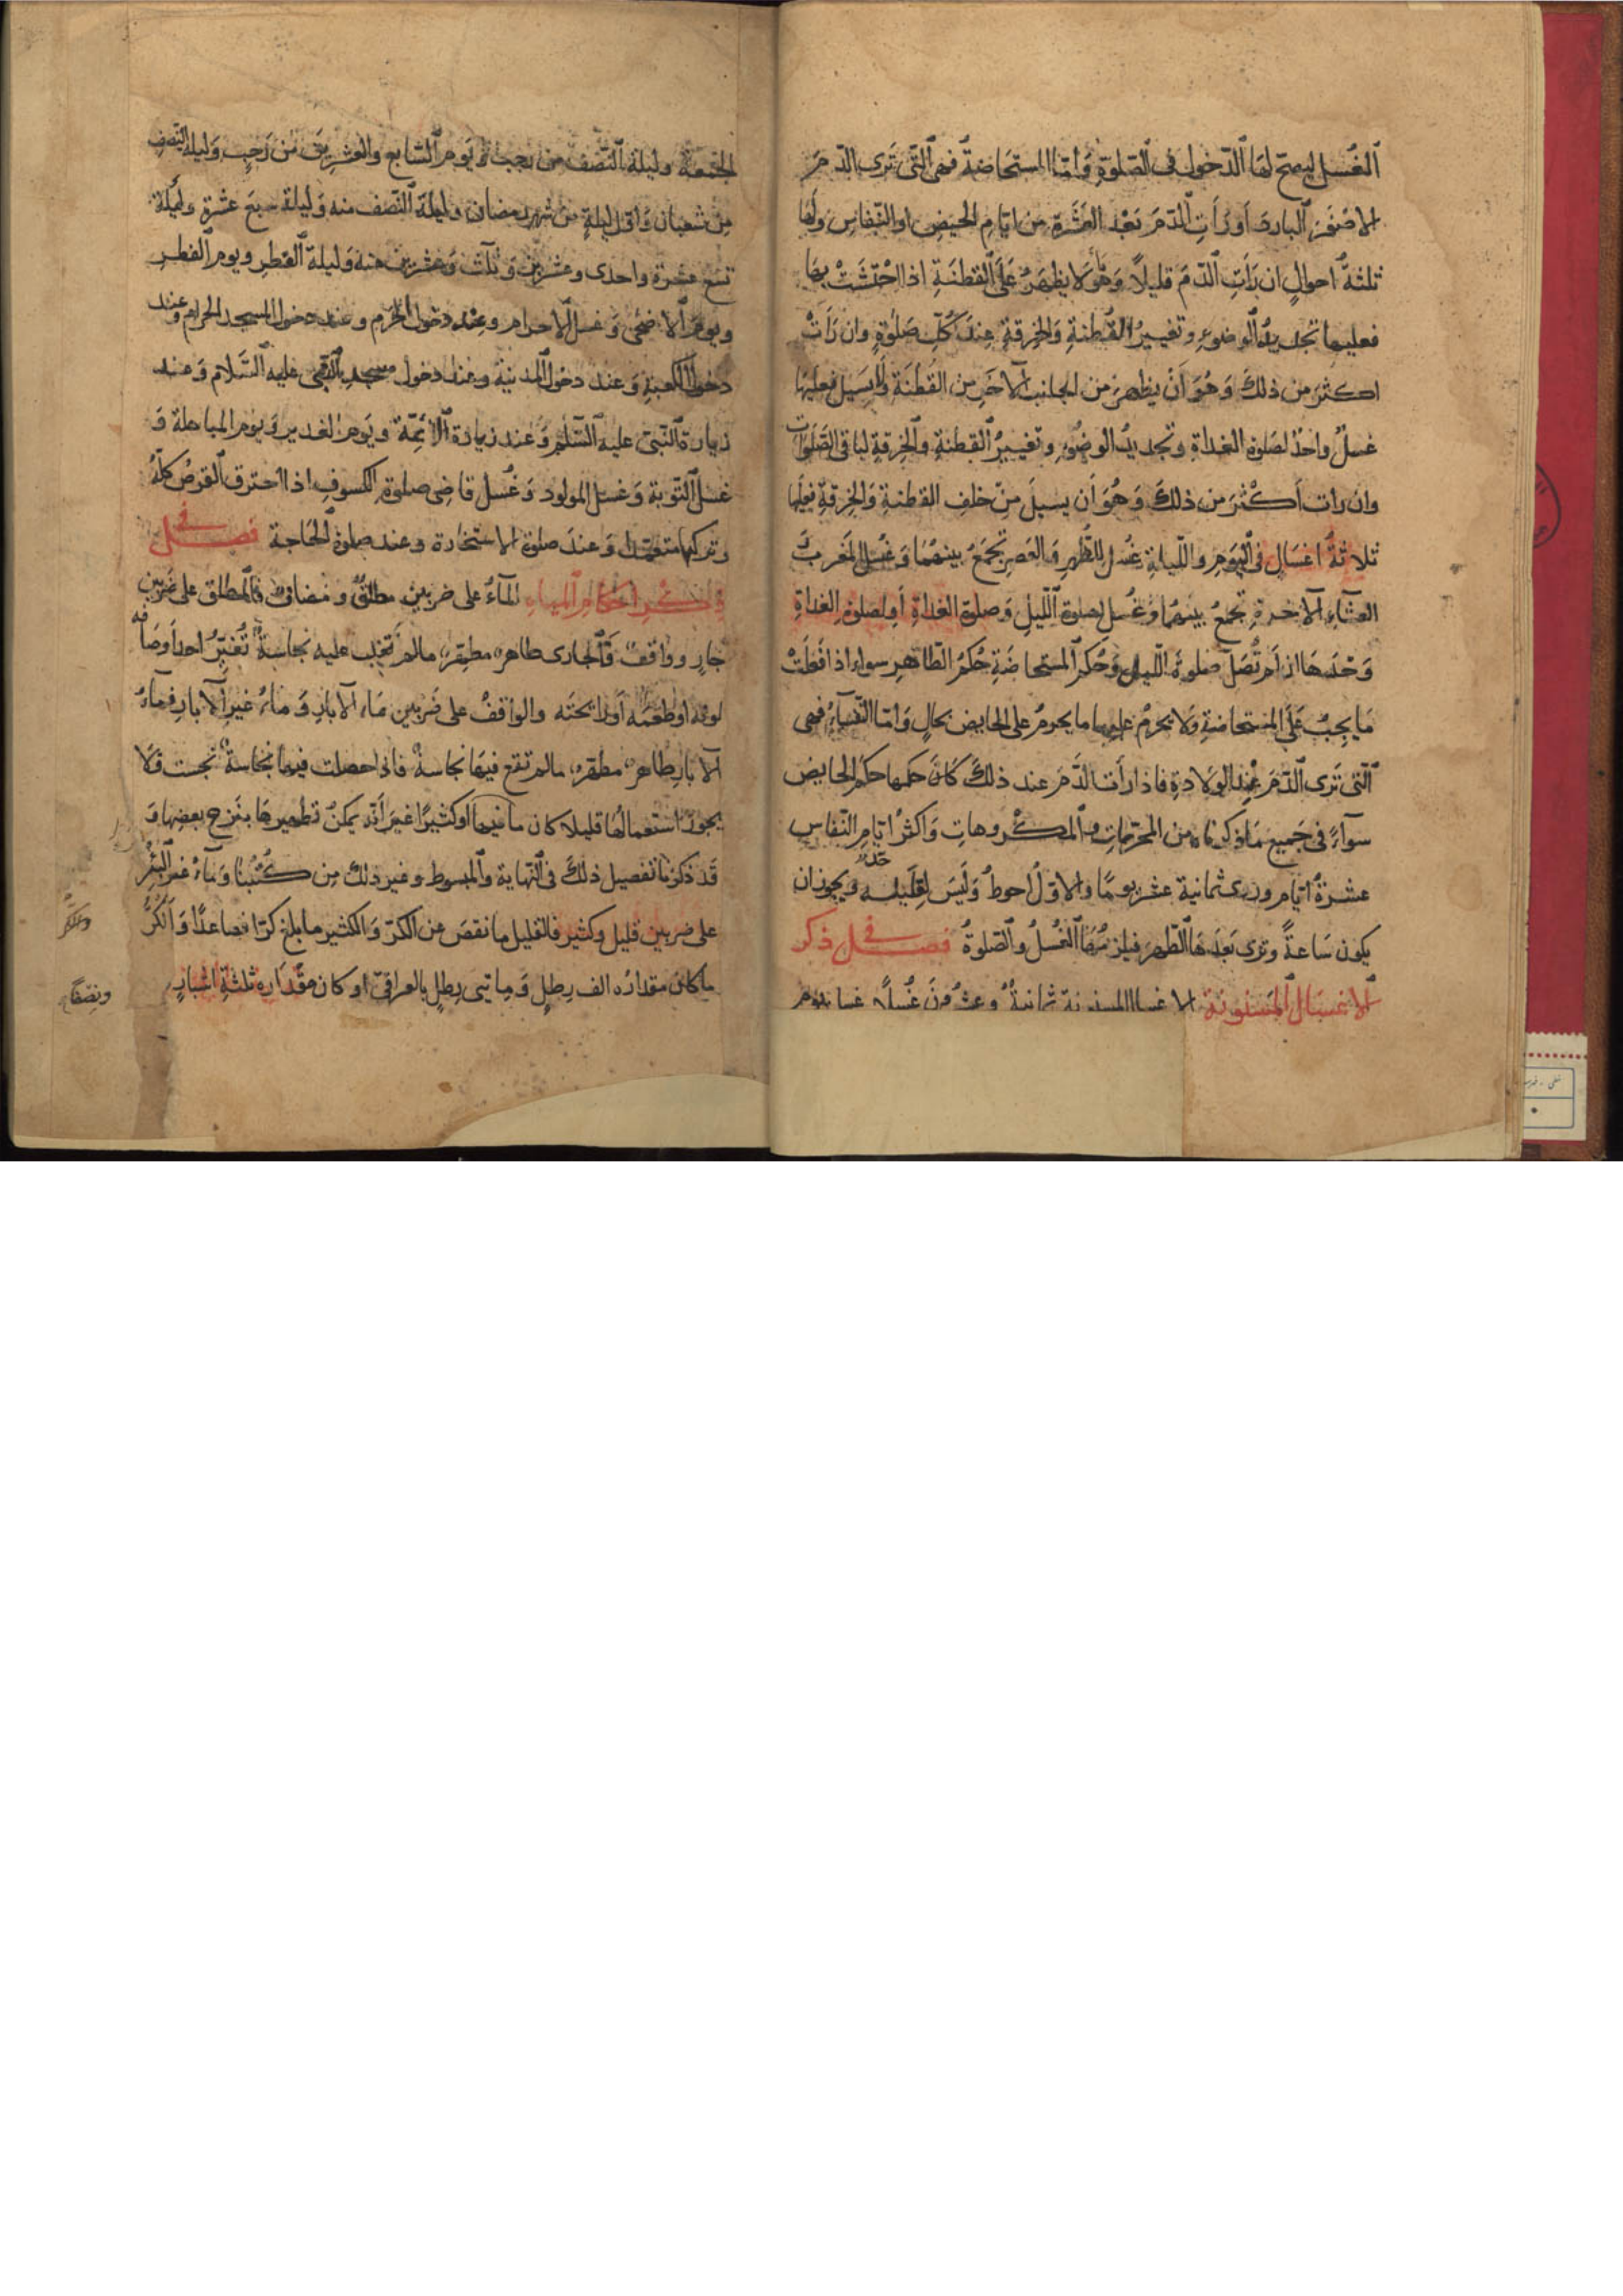 الغسل ليصح لها الدخول في الصلوة واما المستحاضة فهي التي ترى الدم
الاصفر البارد او رات الدم بعد العشرة من ايام الحيض او النفاس ولها
ثلثة احوال ان رات الدم قليلا وهو ما لا يظهر على القطنة اذا احتشت بها
فعليها تجديد الوضوء وتغيير القطنة والخرقة عند كل صلوة وان رات
اكثر من ذلك وهو ان يظهر من الجانب الآخر من القطنة ولا يسيل فعليها
غسل واحد لصلوة الغداة وتجديد الوضوء وتغيير القطنة والخرقة لباقي الصلوات
وان رات اكثر من ذلك وهو ان يسيل من خلف القطنة والخرقة فعليها
ثلاثة اغسال في اليوم والليلة غسل للظهر والعصر تجمع بينهما وغسل المغرب و
العشاء الآخرة تجمع بينهما وغسل لصلوة الليل وصلوة الغداة او لصلوة الغداة
وحدها ان لم تصل صلوة الليل وحكم المستحاضة حكم الطاهر سواء اذا فعلت
ما يجب على المستحاضة ولا يحرم عليها ما يحرم على الحايض بحال واما النفساء فهي
التي ترى الدم عند الولادة فاذا رات الدم عند ذلك كان حكمها حكم الحايض
سواء في جميع ما ذكرناه من المحرمات والمكروهات واكثر ايام النفاس
عشرة ايام وروى ثمانية عشر يوما والاول احوط وليس لقليله حد ويجوز ان
يكون ساعة وترى بعدها الطهر فيلزمها الغسل والصلوة فصل في ذكر
الاغسال المسنونة الاغسال المسنونة ثمانية وعشرون غسلا غسل يوم
الجمعة وليلة النصف من رجب ويوم السابع والعشرين من رجب وليلة النصف
من شعبان واول ليلة من شهر رمضان وليلة النصف منه وليلة سبع عشرة وليلة
تسع عشرة واحدى وعشرين وثلث وعشرين منه وليلة الفطر ويوم الفطر
ويوم الاضحى وغسل الاحرام وعند دخول الحرم وعند دخول المسجد الحرام وعند
دخول الكعبة وعند دخول المدينة وعند دخول مسجد النبي عليه السلام وعند
زيارة النبي عليه السلم وعند زيارة الائمة ويوم الغدير ويوم المباهلة و
غسل التوبة وغسل المولود وغسل قاضي صلوة الكسوف اذا احترق القرص كله
وتركها متعمدا وعند صلوة الاستخارة وعند صلوة الحاجة فصل في
ذكر احكام المياه الماء على ضربين مطلق ومضاف فالمطلق على ضربين
جار وواقف فالجاري طاهر مطهر ما لم تغلب عليه نجاسة تغير احد اوصافه
لونه او طعمه او رايحته والواقف على ضربين ماء الآبار وماء غير الآبار فماء
الآبار طاهر مطهر ما لم تقع فيها نجاسة فاذا حصلت فيها نجاسة نجست فلا
يجوز استعمالها قليلا كان ما فيها او كثيرا غير انه يمكن تطهيرها بنزح بعضها و
قد ذكرنا تفصيل ذلك في النهاية والمبسوط وغير ذلك من كتبنا وماء غير البئر
على ضربين قليل وكثير فالقليل ما نقص من الكر والكثير ما بلغ كرا فصاعدا والكر
ما كان مقداره الف رطل ومايتي رطل بالعراقي او كان مقداره ثلثة اشبار
والكر
ونصفا